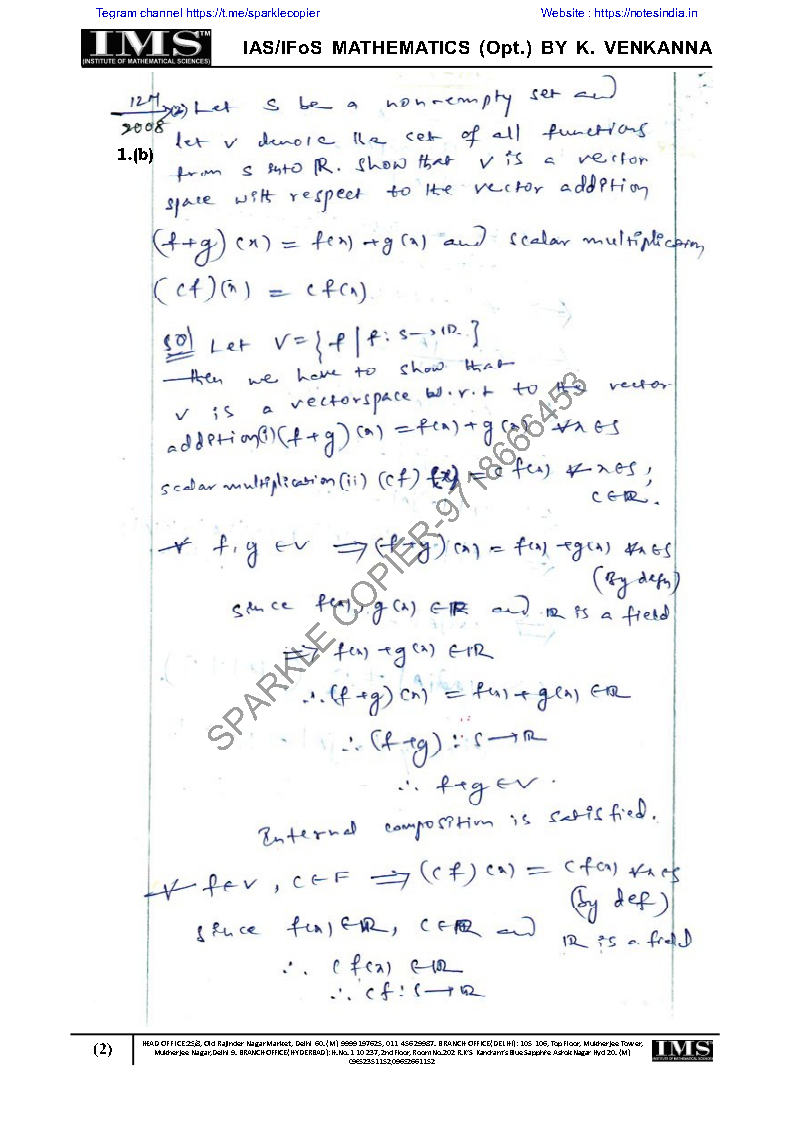 Tegram channel https://t.me/sparklecopier Website : https://notesindia.in
IMS™
(INSTITUTE OF MATHEMATICAL SCIENCES)
IAS/IFoS MATHEMATICS (Opt.) BY K. VENKANNA
12M
2008
1.(b)
(2) Let S be a non-empty set and
let V denote the set of all functions
from S into ℝ. Show that V is a vector
space with respect to the vector addition
(f+g)(x) = f(x) + g(x) and scalar multiplication
(cf)(x) = c f(x)
Sol Let V = { f | f : S → ℝ }
then we have to show that
V is a vectorspace w.r.t to the vector
addition (i) (f+g)(x) = f(x) + g(x) ∀ x ∈ S
scalar multiplication (ii) (cf)(x) = c f(x) ∀ x ∈ S,
c ∈ ℝ.
∀ f, g ∈ V ⟹ (f+g)(x) = f(x) + g(x) ∀ x ∈ S
(By defn)
since f(x), g(x) ∈ ℝ and ℝ is a field
⟹ f(x) + g(x) ∈ ℝ
∴ (f+g)(x) = f(x) + g(x) ∈ ℝ
∴ (f+g) : S → ℝ
∴ f+g ∈ V.
Internal composition is satisfied.
∀ f ∈ V, c ∈ F ⟹ (cf)(x) = c f(x) ∀ x ∈ S
(by def)
since f(x) ∈ ℝ, c ∈ ℝ and ℝ is a field
∴ c f(x) ∈ ℝ
∴ cf : S → ℝ
SPARKLE COPIER-9718666453
(2)
HEAD OFFICE:25/8, Old Rajinder Nagar Market, Delhi 60. (M) 9999197625, 011 45629987. BRANCH OFFICE(DELHI): 105 106, Top Floor, Mukherjee Tower,
Mukherjee Nagar, Delhi 9. BRANCH OFFICE(HYDERBAD): H.No. 1 10 237, 2nd Floor, Room No.202 R.K'S Kancham's Blue Sapphire Ashok Nagar Hyd 20. (M)
09652351152,09652661152
IMS™
(INSTITUTE OF MATHEMATICAL SCIENCES)